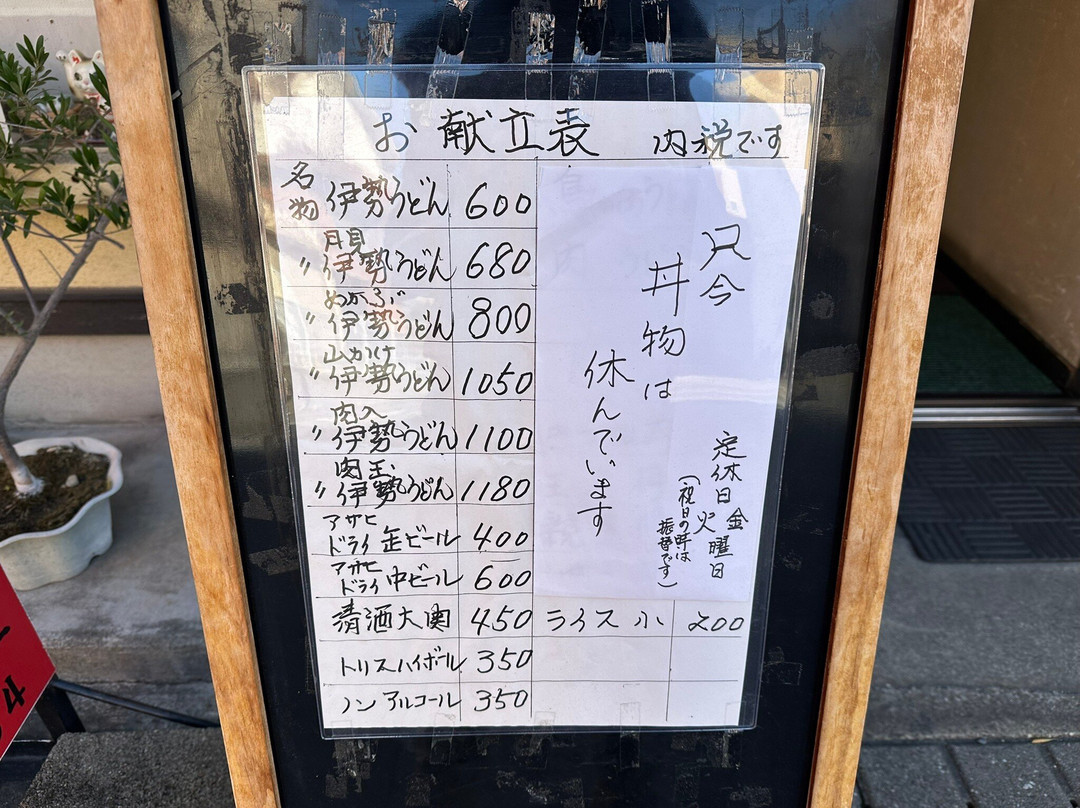 お献立表 内税です
名物 伊勢うどん 600
月見
〃 伊勢うどん 680
めかぶ
〃 伊勢うどん 800
山かけ
〃 伊勢うどん 1050
肉入
〃 伊勢うどん 1100
肉玉
〃 伊勢うどん 1180
アサヒドライ 缶ビール 400
アサヒドライ 中ビール 600
清酒大関 450
トリスハイボール 350
ノンアルコール 350
只今
丼物は
休んでいます
定休日 金曜日
火
(祝日の時は
振替です)
ライス 小 200
4